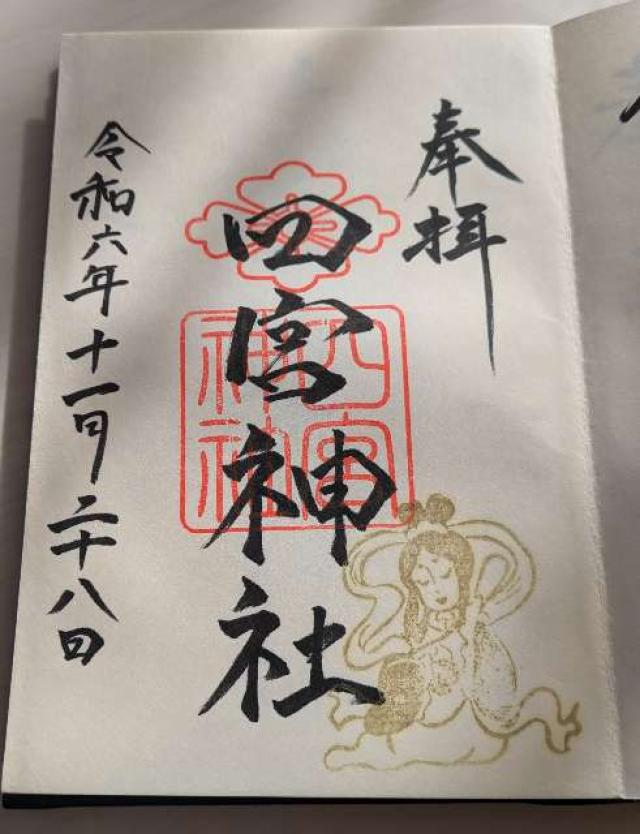 奉拝
四宮神社
四宮神社
令和六年十一月二十八日